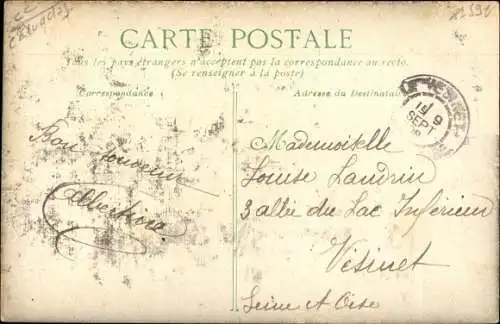 CARTE POSTALE
Tous les pays étrangers n'acceptent pas la correspondance au recto.
(Se renseigner à la poste)
Correspondance
Adresse du Destinataire
LE VESINET
19 9
SEPT
Bon souvenir
Albertine
Mademoiselle
Louise Landrin
3 allée du Lac Inférieur
Vésinet
Seine et Oise